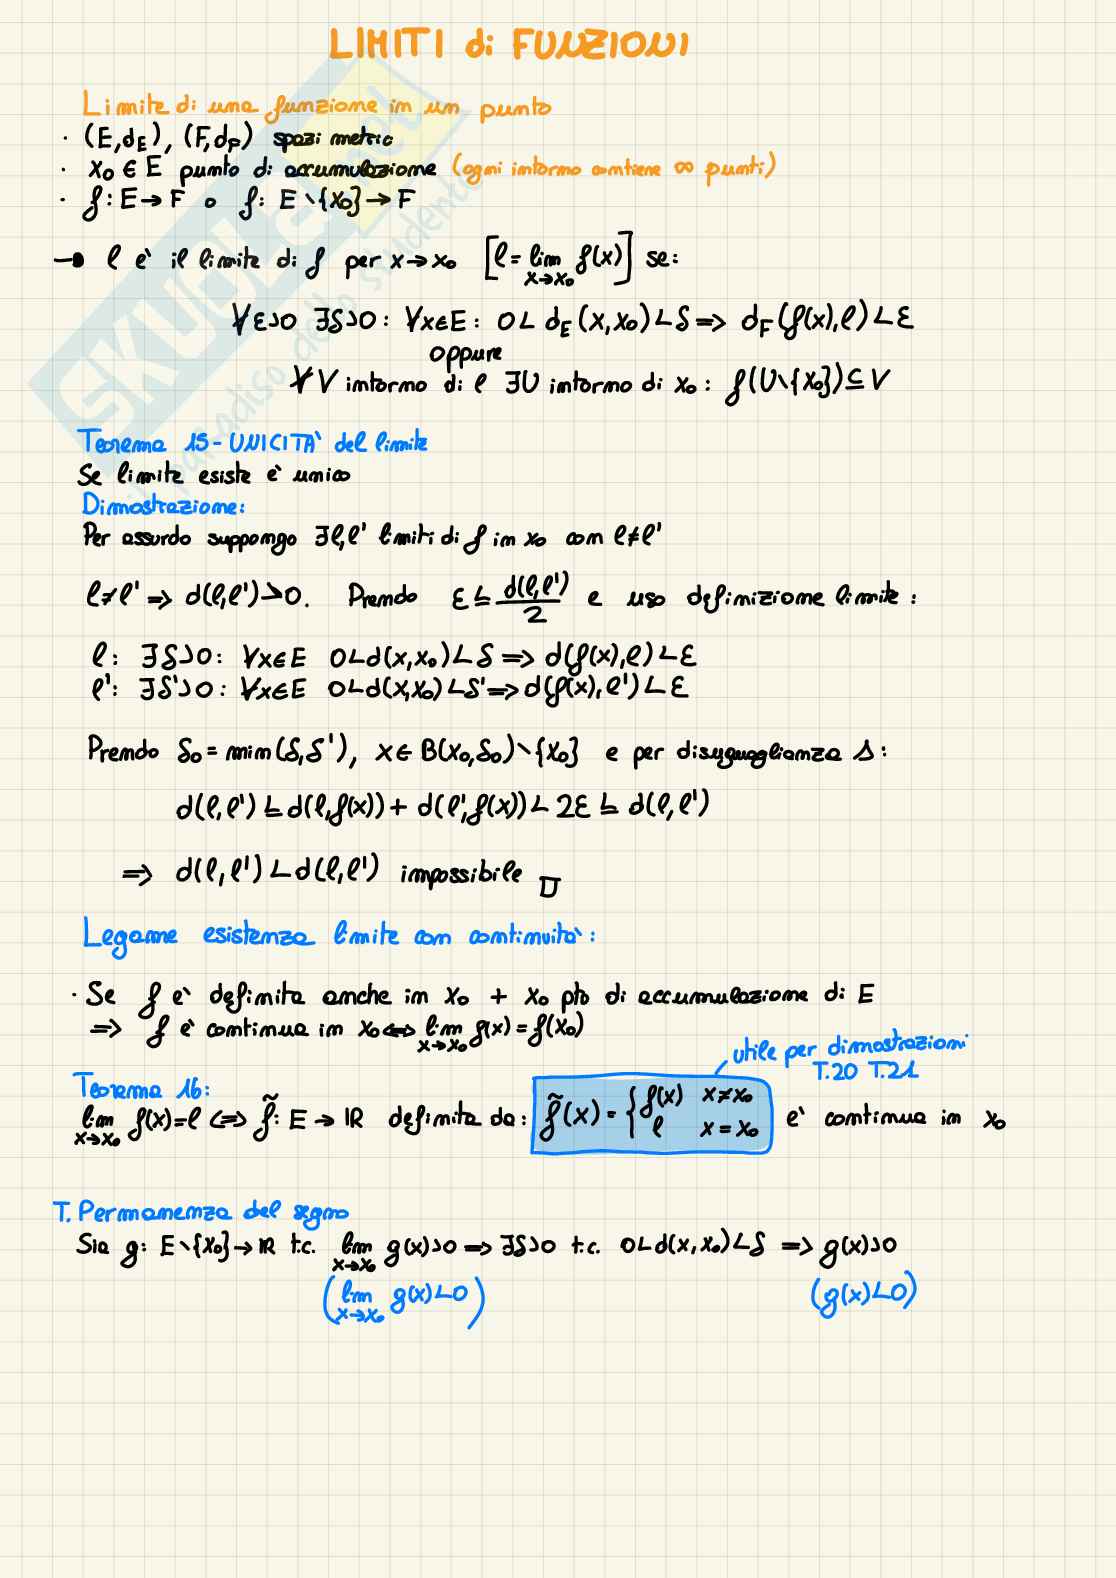 LIMITI di FUNZIONI
Limite di una funzione in un punto
· (E,d_E), (F,d_F) spazi metric
· x₀ ∈ E punto di accumulazione (ogni intorno contiene ∞ punti)
· f: E → F o f: E∖{x₀} → F
→ l è il limite di f per x→x₀ [l = lim_{x→x₀} f(x)] se:
∀ε>0 ∃δ>0: ∀x∈E: 0< d_E(x,x₀)<δ ⇒ d_F(f(x),l)<ε
oppure
∀V intorno di l ∃U intorno di x₀: f(U∖{x₀}) ⊆ V
Teorema 15 - UNICITÀ del limite
Se limite esiste è unico
Dimostrazione:
Per assurdo suppongo ∃l,l' limiti di f in x₀ con l≠l'
l≠l' ⇒ d(l,l')>0. Prendo ε ≤ d(l,l')/2 e uso definizione limite:
l: ∃δ>0: ∀x∈E 0<d(x,x₀)<δ ⇒ d(f(x),l)<ε
l': ∃δ'>0: ∀x∈E 0<d(x,x₀)<δ' ⇒ d(f(x),l')<ε
Prendo δ₀ = min(δ,δ'), x ∈ B(x₀,δ₀)∖{x₀} e per disuguaglianza Δ:
d(l,l') ≤ d(l,f(x)) + d(l',f(x)) < 2ε ≤ d(l,l')
⇒ d(l,l') < d(l,l') impossibile □
Legame esistenza limite con continuità:
· Se f è definita anche in x₀ + x₀ pto di accumulazione di E
⇒ f è continua in x₀ ⇔ lim_{x→x₀} f(x) = f(x₀)
utile per dimostrazioni
T.20 T.21
Teorema 16:
lim_{x→x₀} f(x)=l ⇔ f̃: E → ℝ definita da: f̃(x) = { f(x) x≠x₀ l x=x₀ è continua in x₀
T. Permanenza del segno
Sia g: E∖{x₀} → ℝ t.c. lim_{x→x₀} g(x)>0 ⇒ ∃δ>0 t.c. 0<d(x,x₀)<δ ⇒ g(x)>0
(lim_{x→x₀} g(x)<0) (g(x)<0)